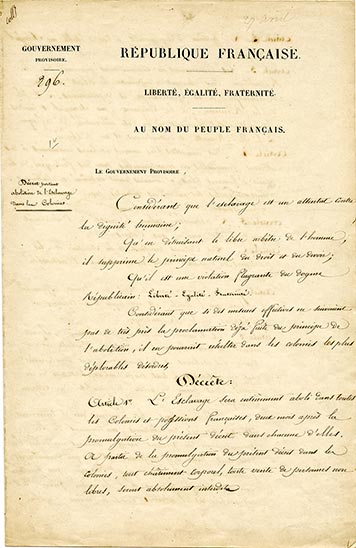 27 avril
coll
GOUVERNEMENT
PROVISOIRE.
RÉPUBLIQUE FRANÇAISE.
296.
LIBERTÉ, ÉGALITÉ, FRATERNITÉ.
1er
AU NOM DU PEUPLE FRANÇAIS.
LE GOUVERNEMENT PROVISOIRE,
Décret portant
abolition de l'Esclavage
dans les Colonies
Considérant que l'esclavage est un attentat contre
la dignité humaine;
Qu'en détruisant le libre arbitre de l'homme,
il supprime le principe naturel du droit et du devoir;
Qu'il est une violation flagrante du dogme
Républicain: Liberté - Egalité - Fraternité.
Considérant que si des mesures effectives ne suivaient
pas de très près la proclamation déjà faite du principe de
l'abolition, il en pourrait résulter dans les colonies les plus
déplorables désordres,
Décrète:
Article 1er L'Esclavage sera entièrement aboli dans toutes
les Colonies et possessions françaises, deux mois après la
promulgation du présent décret dans chacune d'elles.
A partir de la promulgation du présent décret dans les
Colonies, tout châtiment corporel, toute vente de personnes non
libres, seront absolument interdits.